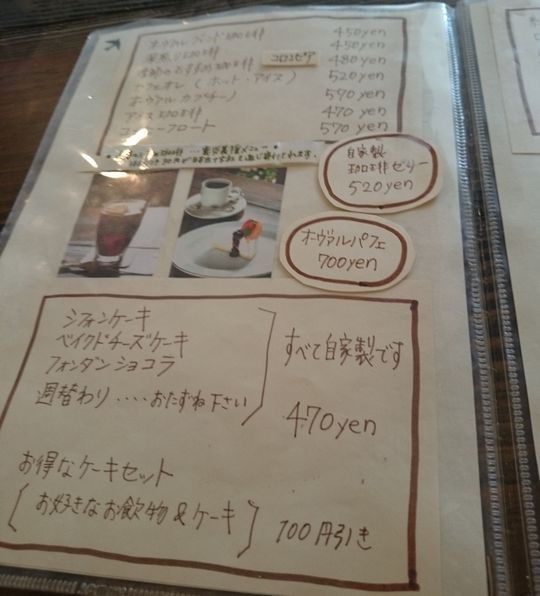 オーヴァルブレンド珈琲 450yen
深煎り珈琲 450yen
季節のおすすめ珈琲 コロンビア 480yen
カフェオレ(ホット・アイス) 520yen
オーヴァルカプチーノ 590yen
アイス珈琲 470yen
コーヒーフロート 570yen
自家製
珈琲ゼリー
520yen
オーヴァルパフェ
700yen
シフォンケーキ
ベイクドチーズケーキ
フォンダンショコラ
週替わり‥‥おたずね下さい
すべて自家製です
470yen
お得なケーキセット
[お好きなお飲物&ケーキ] 100円引き